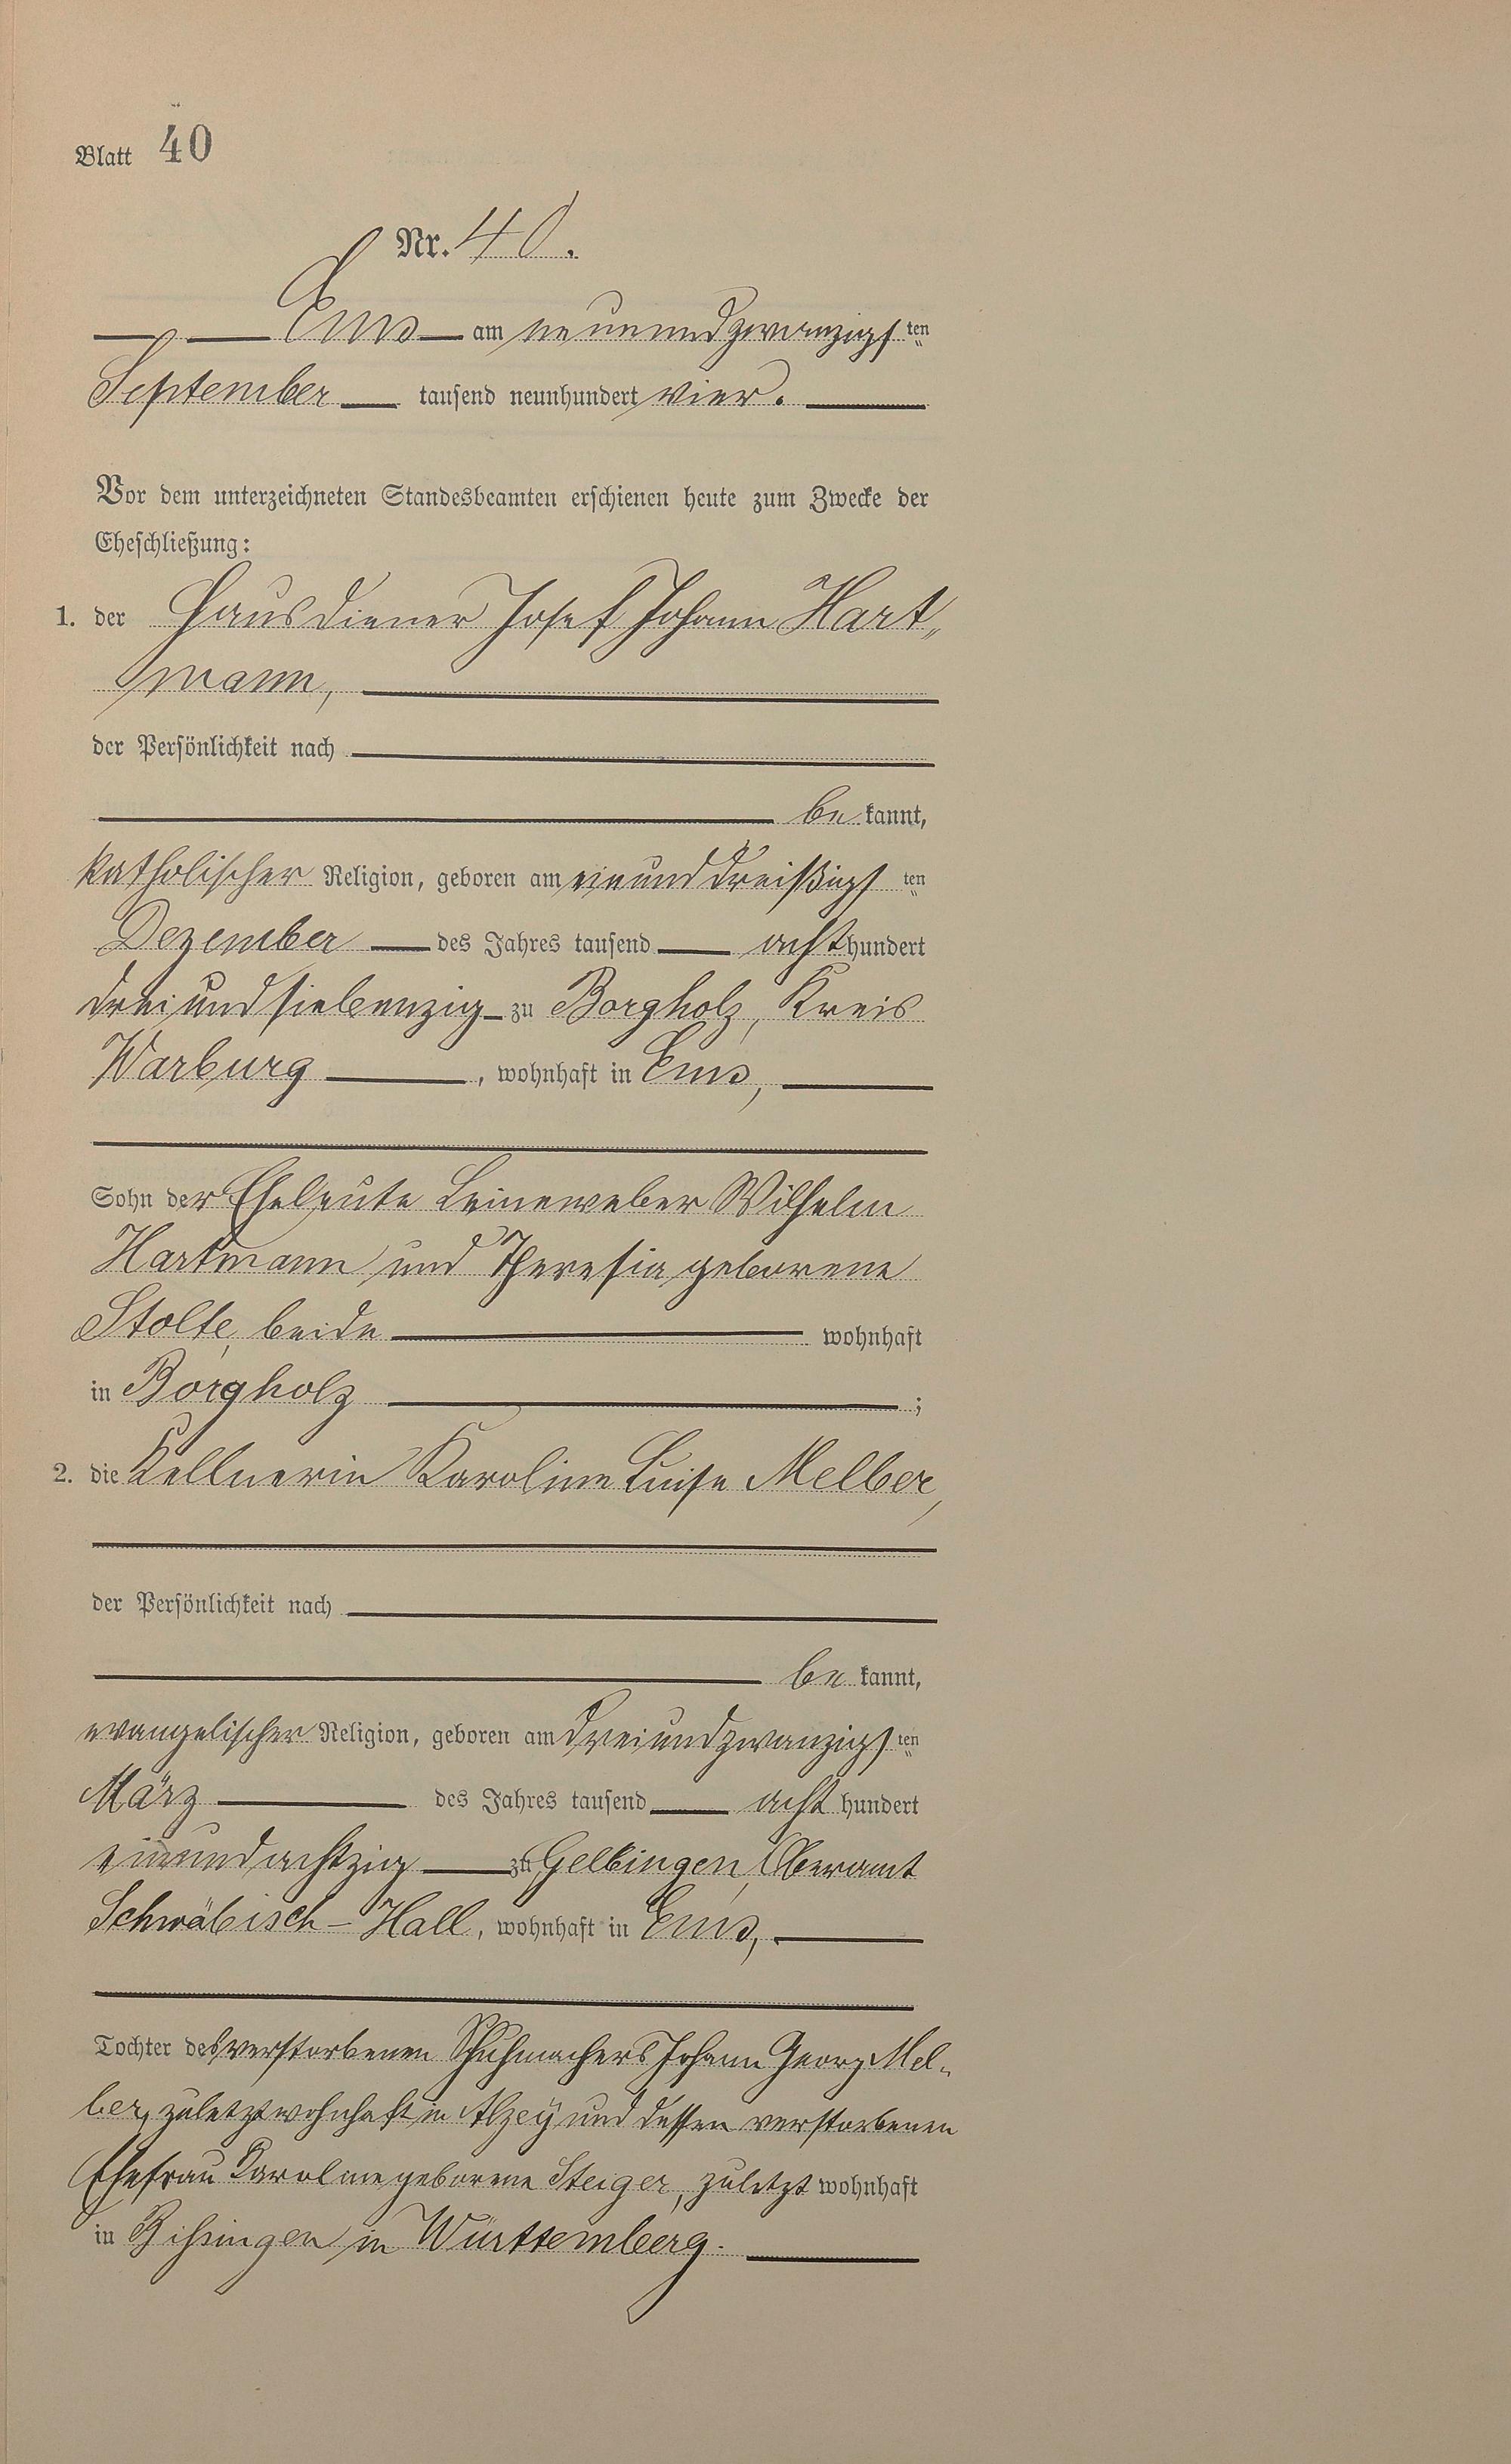 Blatt 40
Nr. 40.
Ems am neunundzwanzigsten
September tausend neunhundert vier.
Vor dem unterzeichneten Standesbeamten erschienen heute zum Zwecke der
Eheschließung:
1. der Hausdiener Josef Johann Hart„
mann,
der Persönlichkeit nach
bekannt,
katholischer Religion, geboren am einunddreißigsten
Dezember des Jahres tausend achthundert
dreiundsiebenzig zu Borgholz, Kreis
Warburg, wohnhaft in Ems,
Sohn der Eheleute Leineweber Wilhelm
Hartmann und Theresia geborene
Stolte, beide wohnhaft
in Borgholz;
2. die Kellnerin Karoline Luise Melber,
der Persönlichkeit nach
bekannt,
evangelischer Religion, geboren am dreiundzwanzigsten
März des Jahres tausend achthundert
einundachtzig zu Gelbingen, Oberamt
Schwäbisch-Hall, wohnhaft in Ems,
Tochter des verstorbenen Schuhmachers Johann Georg Mel„
ber, zuletzt wohnhaft in Alzey und dessen verstorbenen
Ehefrau Karoline geborene Steiger, zuletzt wohnhaft
in Bissingen in Württemberg.